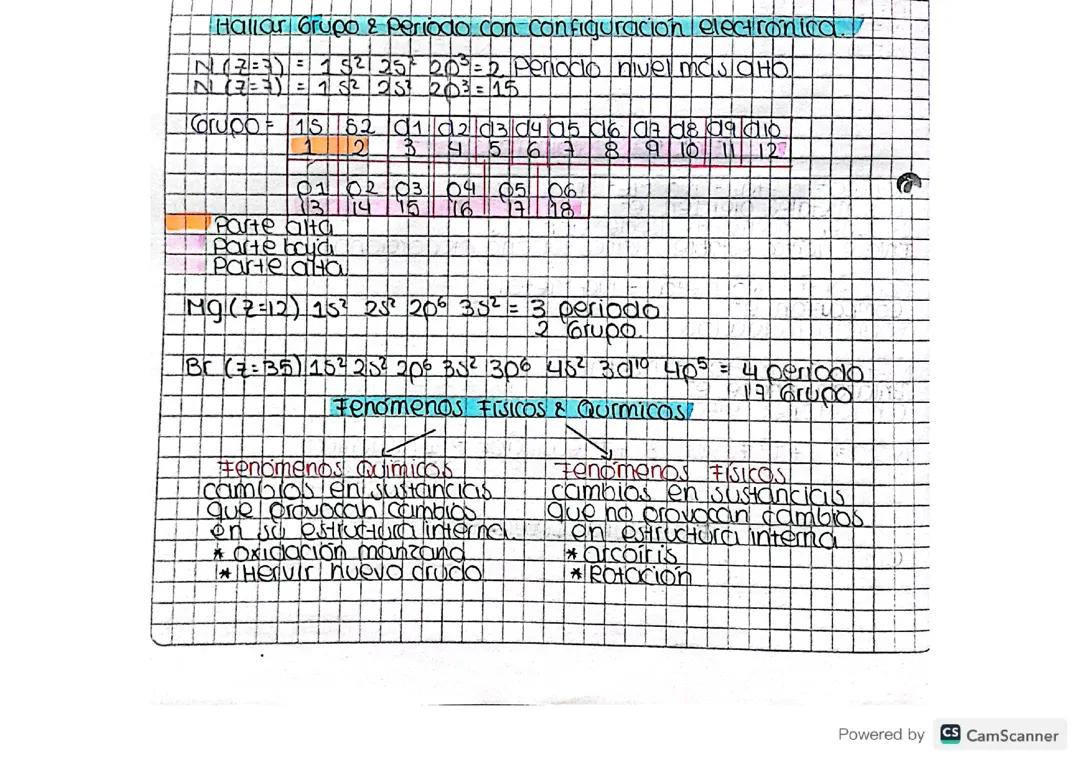 Hallar Grupo & Periodo con configuración electrónica.
N (Z=7) = 1s² 2s² 2p³ = 2 Periodo nivel más alto
N (Z=7) = 1s² 2s² 2p³ = 15
Grupo = 1S S2 d1 d2 d3 d4 d5 d6 d7 d8 d9 d10
1 2 3 4 5 6 7 8 9 10 11 12
p1 p2 p3 p4 p5 p6
13 14 15 16 17 18
Parte alta
Parte baja
Parte alta
Mg (Z=12) 1s² 2s² 2p⁶ 3s² = 3 periodo
2 Grupo.
Br (Z=35) 1s² 2s² 2p⁶ 3s² 3p⁶ 4s² 3d¹⁰ 4p⁵ = 4 periodo
17 Grupo
Fenómenos Físicos & Químicos
Fenómenos Químicos
cambios en sustancias
que provocan cambios
en su estructura interna.
* oxidación manzana
* Hervir huevo crudo
Fenómenos Físicos
cambios en sustancias
que no provocan cambios
en estructura interna
* arcoíris
* Rotación
Powered by CS CamScanner